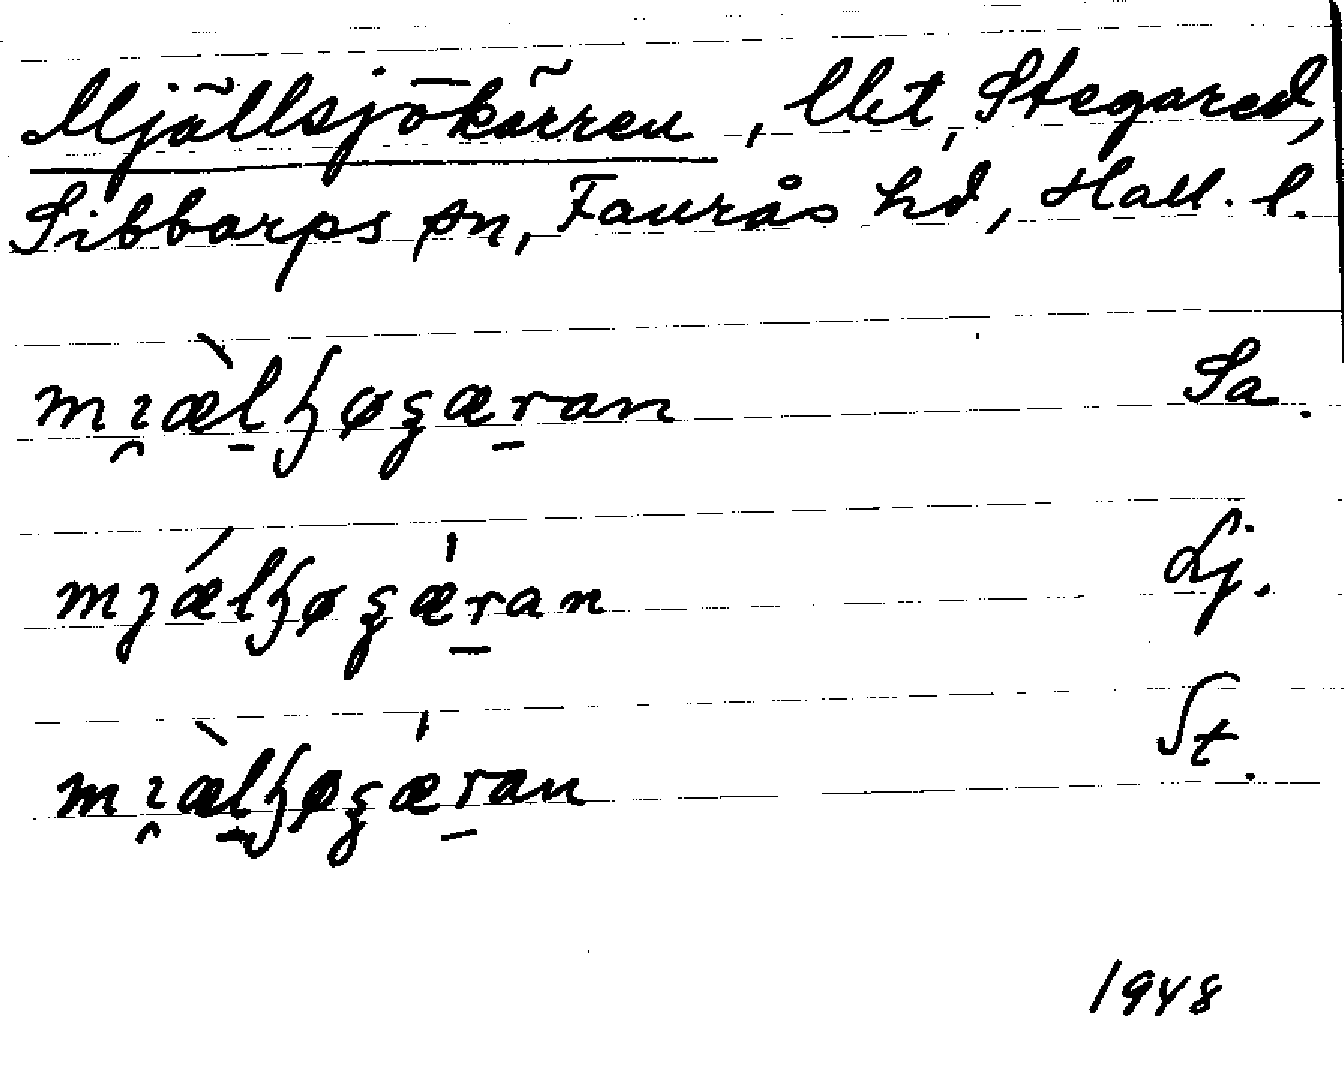 Mjällsjökärren, Ubt, Stegared,
Sibbarps sn, Faurås hd, Hall. l.
mıæ̀lɧøʒæran Sa.
mȷǽlɧøʒæ̍ran Lj.
mıæ̀lɧøʒæ̍ran St.
1948